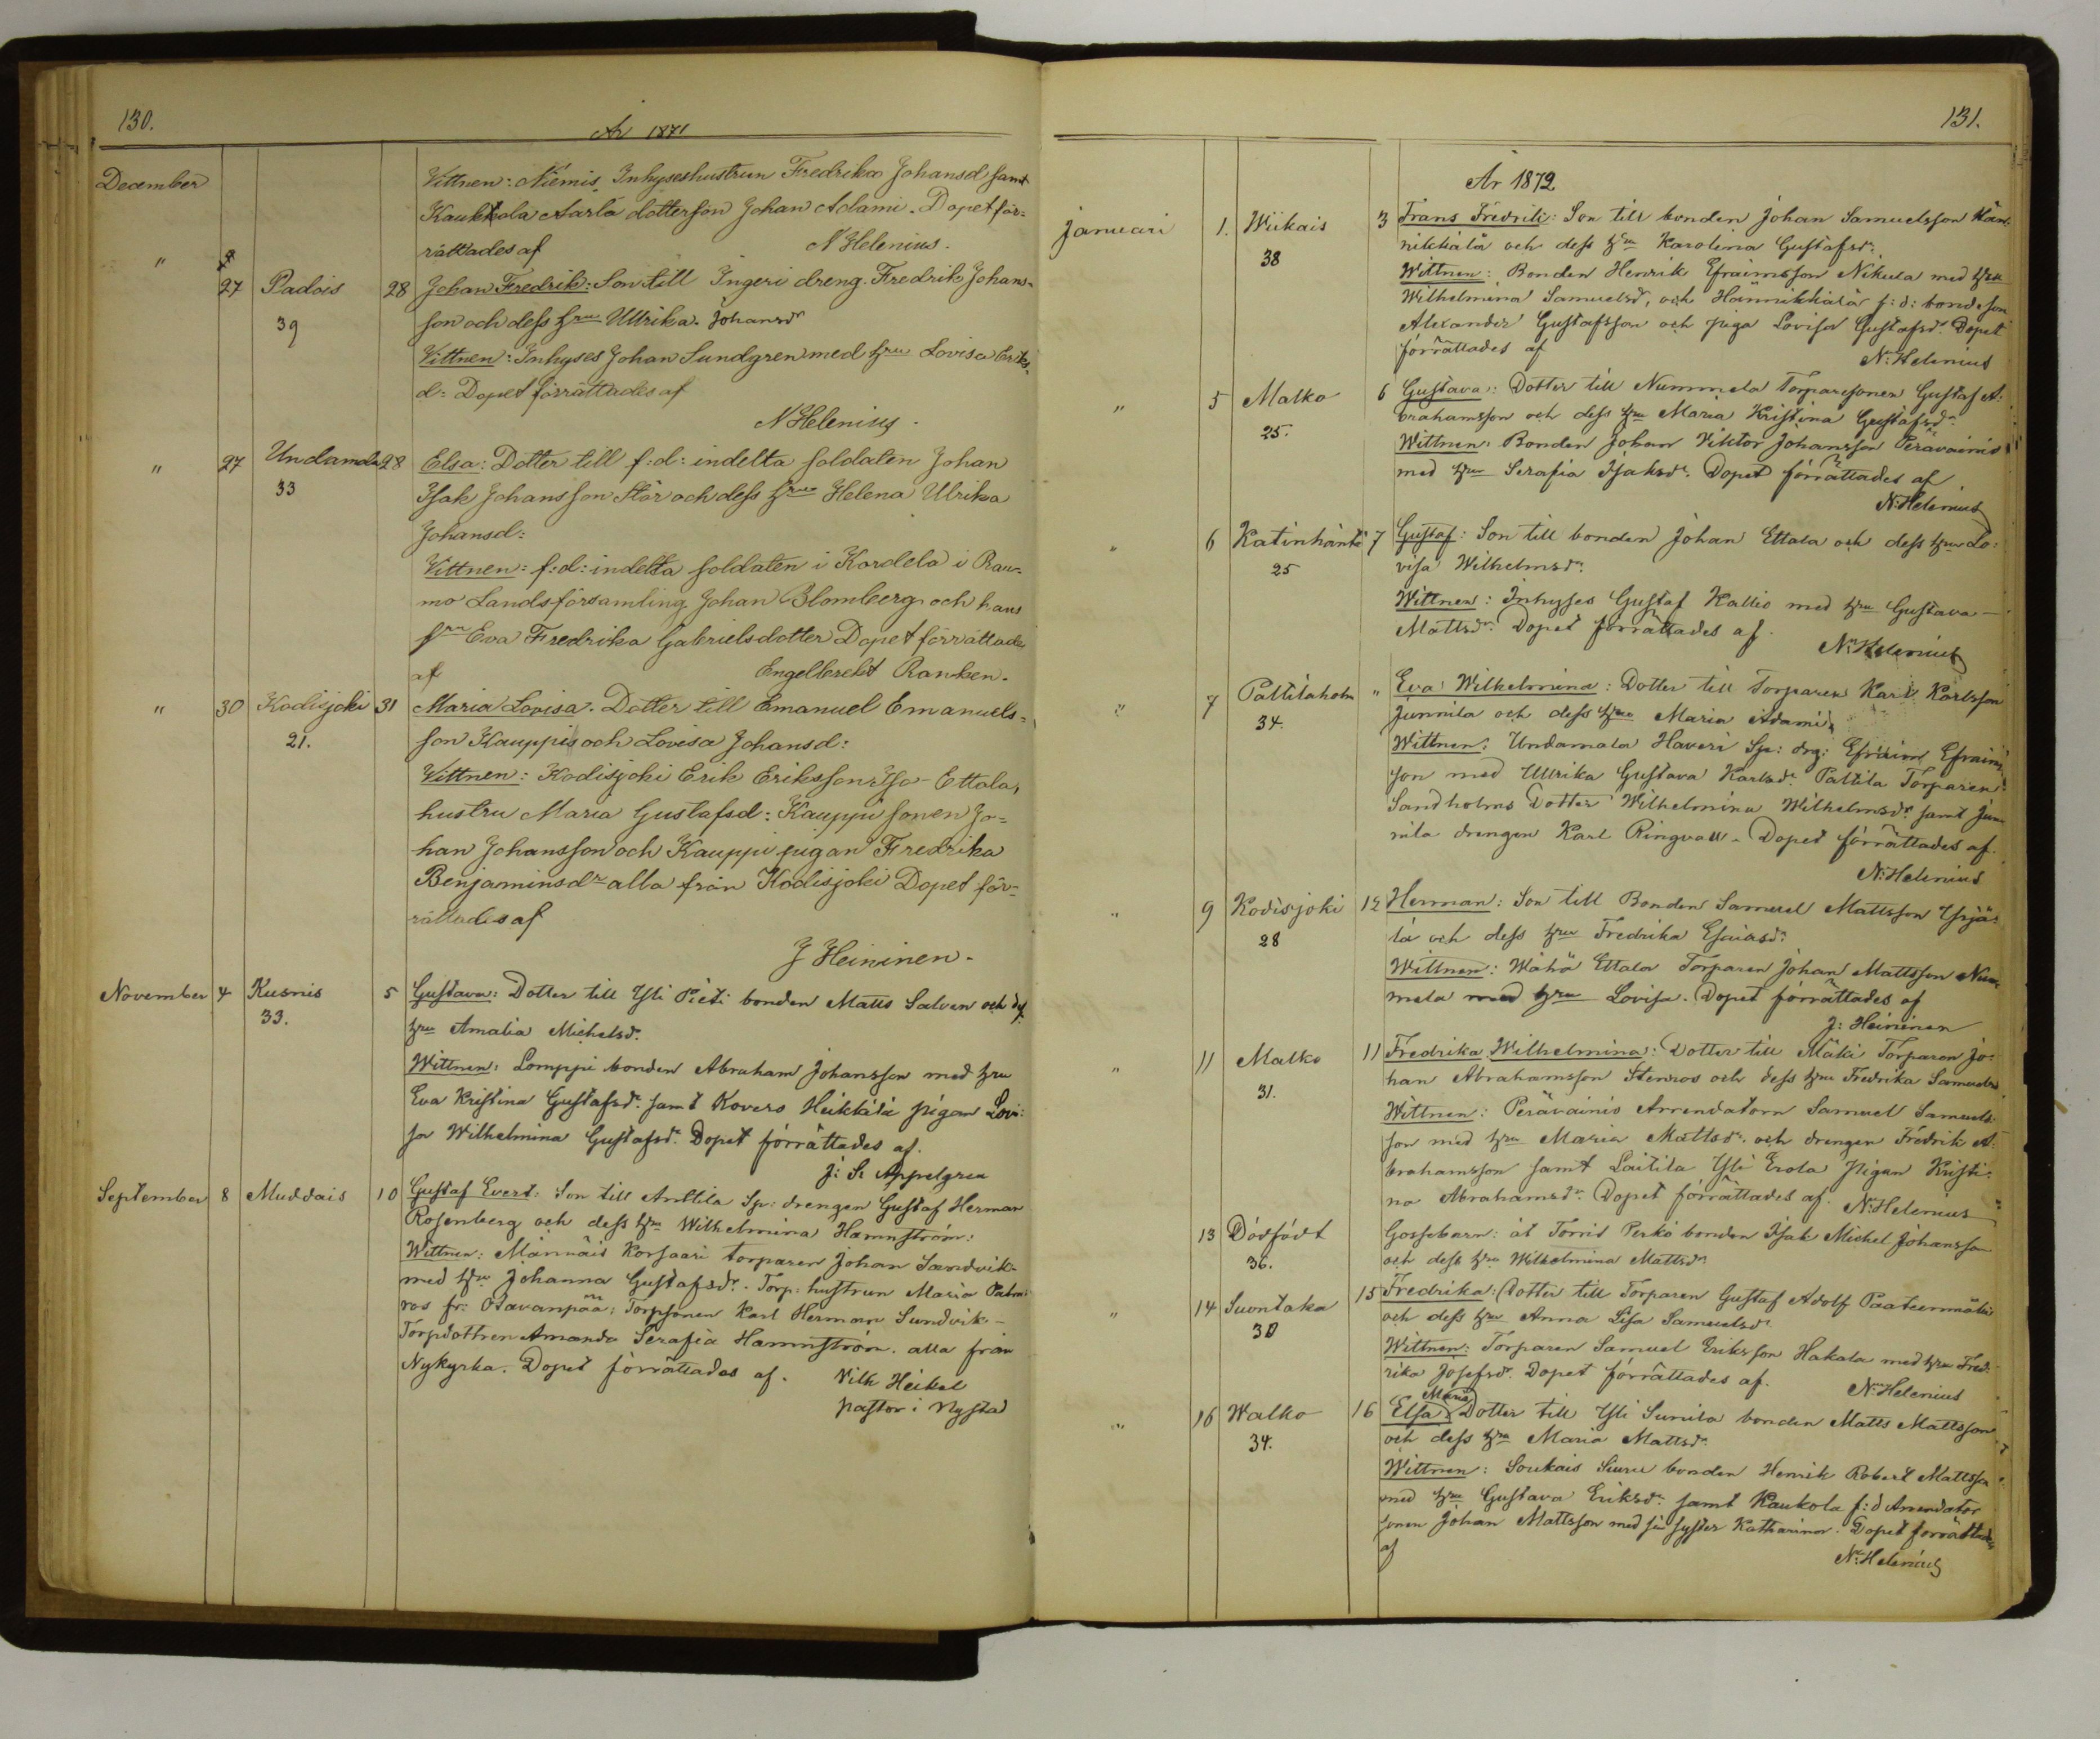 130.
År 1871
December
Vittnen: Niemis, Inhyseshustrun Fredrika Johansd samt
Kaukkola Aarla dotterson Johan Adami. Dopet för-
rättades af N Helenius.
" 27 Padois 28 Johan Fredrik: Son till Ingeri dreng. Fredrik Johans-
39 son och dess hru Ullrika. Johansdr
Vittnen: Inhyses Johan Sundgren med hru Lovisa Eriks-
d: Dopet förrättades af
N Helenius.
" 27 Undamala 28 Elsa: Dotter till f:d: indelta soldaten Johan
33 Isak Johansson Stör och dess hru Helena Ulrika
Johansd:
Vittnen: f:d: indelta soldaten i Kordela i Rau-
mo Landsförsamling Johan Blomberg och hans
hru Eva Fredrika Gabrielsdotter Dopet förrättades
af Engelbrekt Ranken.
" 30 Kodisjoki 31 Maria Lovisa. Dotter till Emanuel Emanuels-
21. son Kauppis och Lovisa Johansd:
Vittnen: Kodisjoki Erik Eriksson Iso-Ettala,
hustru Maria Gustafsd: Kauppi sonen Jo-
han Johansson och Kauppi pigan Fredrika
Benjaminsdr alla från Kodisjoki Dopet för-
rättades af
J Heininen.
November 4 Kusnis 5 Gustava: Dotter till Yli Pieti bonden Matts Salven och dess
33. hru Amalia Michelsdr.
Wittnen: Lomppi bonden Abraham Johansson med hru
Eva Kristina Gustafsdr. samt Kovero Heikkilä pigan Lovi-
sa Wilhelmina Gustafsdr. Dopet förrättades af.
J: S: Appelgren
September 8 Muddais 10 Gustaf Evert: Son till Anttila Sp: drengen Gustaf Herman
Rosenberg och dess hru Wilhelmina Hamnström:
Wittnen: Männäis Korsaari torparen Johan Sandvik
med hru Johanna Gustafsdr. Torp: hustrun Maria
fr: Otavanpää; Torpsonen Karl Herman Sundvik-
Torpdottren Amanda Serafia Hamnström. alla från
Nykyrka. Dopet förrättades af. Vilh Heikel
pastor i Nystad
131.
År 1872.
Januari 1. Wiikais 3 Frans Fredrik: Son till bonden Johan Samuelsson Hän-
38 nikkälä och dess hru Karolina Gustafsdr.
Wittnen: Bonden Henrik Efraimsson Nikula med hru
Wilhelmina Samuelsdr, och Hännikkälä f:d: bondeson
Alexander Gustafsson och piga Lovisa Gustafsdr. Dopet
förrättades af N: Helenius
" 5 Malko 6 Gustava: Dotter till Nummela Torparesonen Gustaf A-
25. brahamsson och dess hru Maria Kristina Gustafsdr.
Wittnen: Bonden Johan Viktor Johansson Perävainio
med hru Serafia Isaksdr. Dopet förrättades af
N: Helenius
" 6 Katinhäntä 7 Gustaf: Son till bonden Johan Ettala och dess hru Lo-
25 visa Wilhelmsdr.
Wittnen: Inhyses Gustaf Kallio med hru Gustava
Mattsdr. Dopet förrättades af.
N: Helenius
" 7 Palttilaholm " Eva Wilhelmina: Dotter till Torparen Karl Karlsson
34. Junnila och dess hru Maria Adami.
Wittnen: Undamala Haveri Sp: drg: Efraim Efraims-
son med Ullrika Gustava Karlsdr. Palttila Torparen
Sandholms Dotter Wilhelmina Wilhelmsdr. samt Jun-
nila drengen Karl Ringvall. Dopet förrättades af.
N: Helenius
" 9 Kodisjoki 12 Herman: Son till Bonden Samuel Mattsson Yrjä-
28 lä och dess hru Fredrika Esaiasdr.
Wittnen: Wähä Ettala Torparen Johan Mattsson Num-
mela med hru Lovisa. Dopet förrättades af
J: Heininen
" 11 Malko 11 Fredrika Wilhelmina: Dotter till Mäki Torparen Jo-
31. han Abrahamsson Stenroos och dess hru Fredrika Samuelsd.
Wittnen: Perävainio Arrendatorn Samuel Samuels-
son med hru Maria Mattsdr. och drengen Fredrik A-
brahamsson samt Laitila Yli Erola pigan Kristi-
na Abrahamsdr. Dopet förrättades af. N: Helenius
13 Dödfödt Gossebarn: åt Torrid Perko bonden Isak Michel Johansson
36. och dess hru Wilhelmina Mattsdr.
" 14 Suontaka 15 Fredrika: Dotter till Torparen Gustaf Adolf Paateenmäki
30 och dess hru Anna Lisa Samuelsdr.
Wittnen: Torparen Samuel Eriksson Hakala med hru Fred-
rika Josefsdr. Dopet förrättades af. N: Helenius
" 16 Walko 16 Elsa Maria Dotter till Yli Sunila bonden Matts Mattsson
34. och dess hru Maria Mattsdr.
Wittnen: Soukais Siuru bonden Henrik Robert Mattsson
med hru Gustava Eriksdr: samt Kaukola f:d Arrendator
sonen Johan Mattsson med sin syster Katharina. Dopet förrättades
af N: Helenius